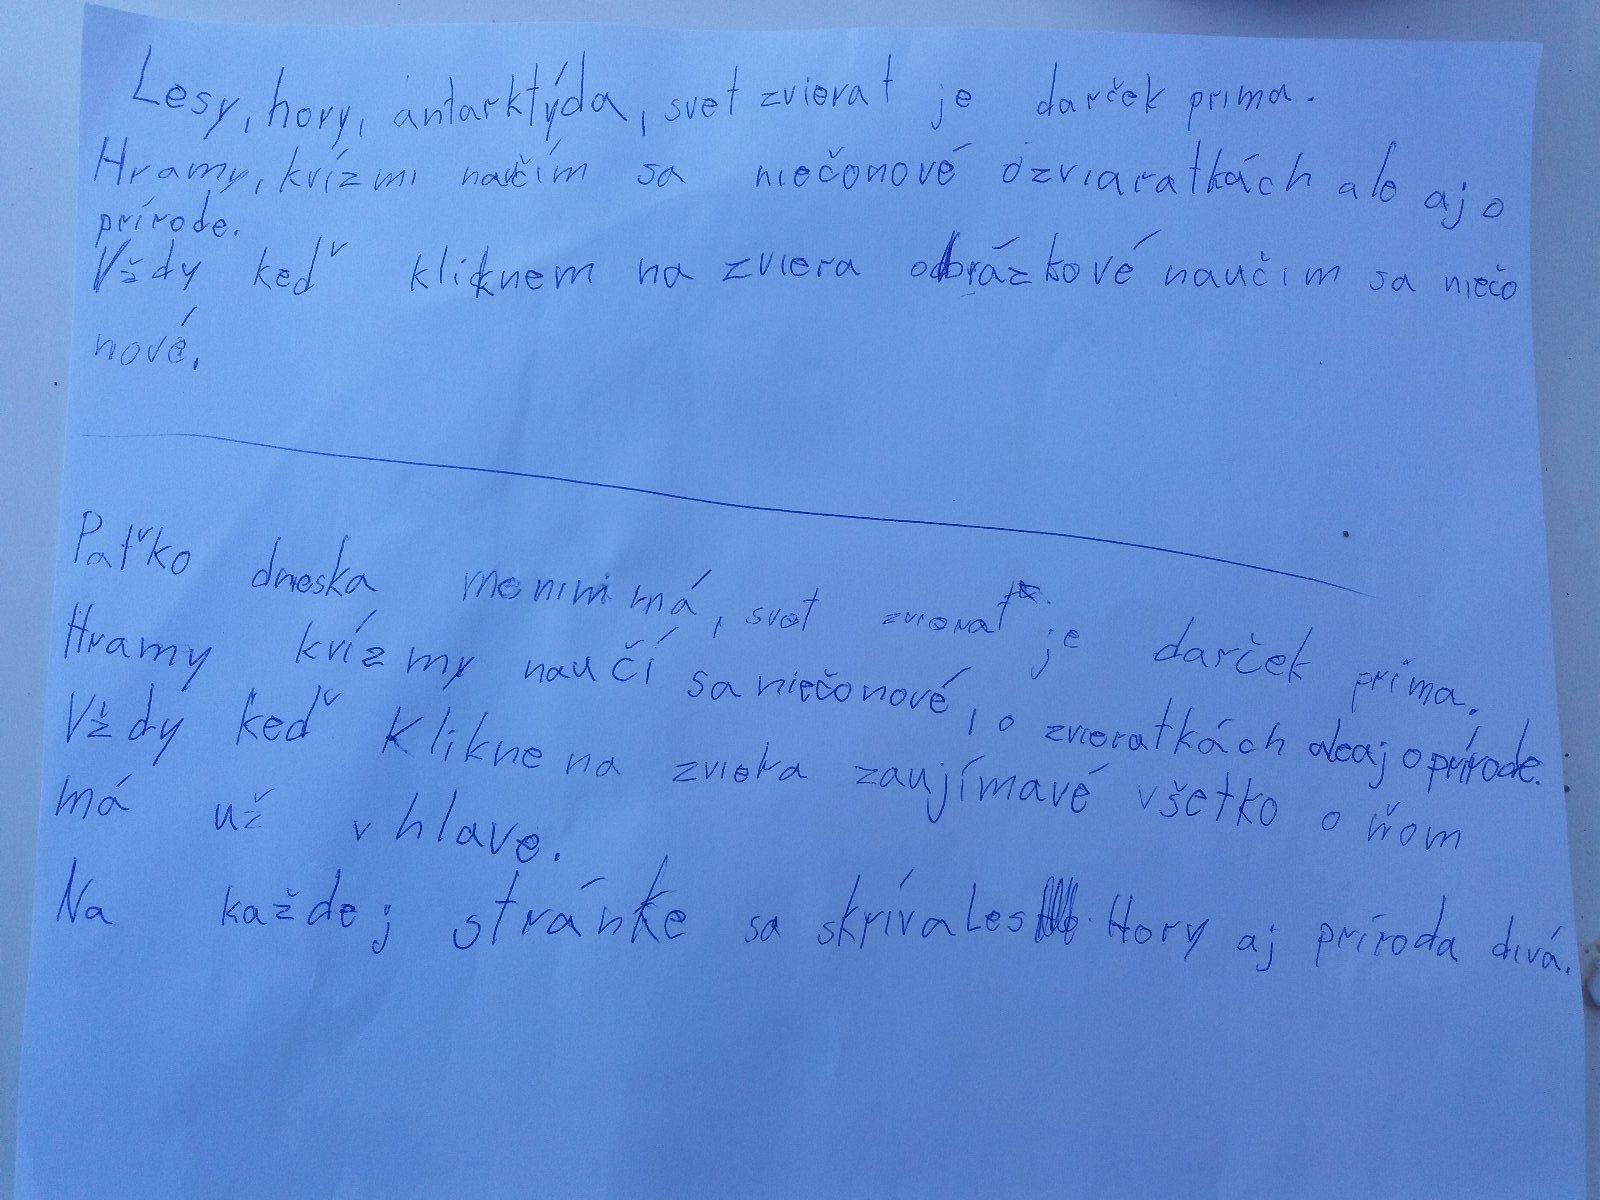 Lesy, hory, antarktýda, svet zvierat je darček prima.
Hramy, kvízmi naučím sa niečonové ozviaratkách ale aj o
prírode.
Vždy keď kliknem na zviera obrázkové naučim sa niečo
nové.
Paťko dneska menini má, svet zvierat je darček prima.
Hramy kvízmy naučí sa niečonové, o zvieratkách aleaj oprírode.
Vždy keď Klikne na zviera zaujímavé všetko o ňom
má už v hlave.
Na každej stránke sa skrívaLes Hory aj príroda divá.